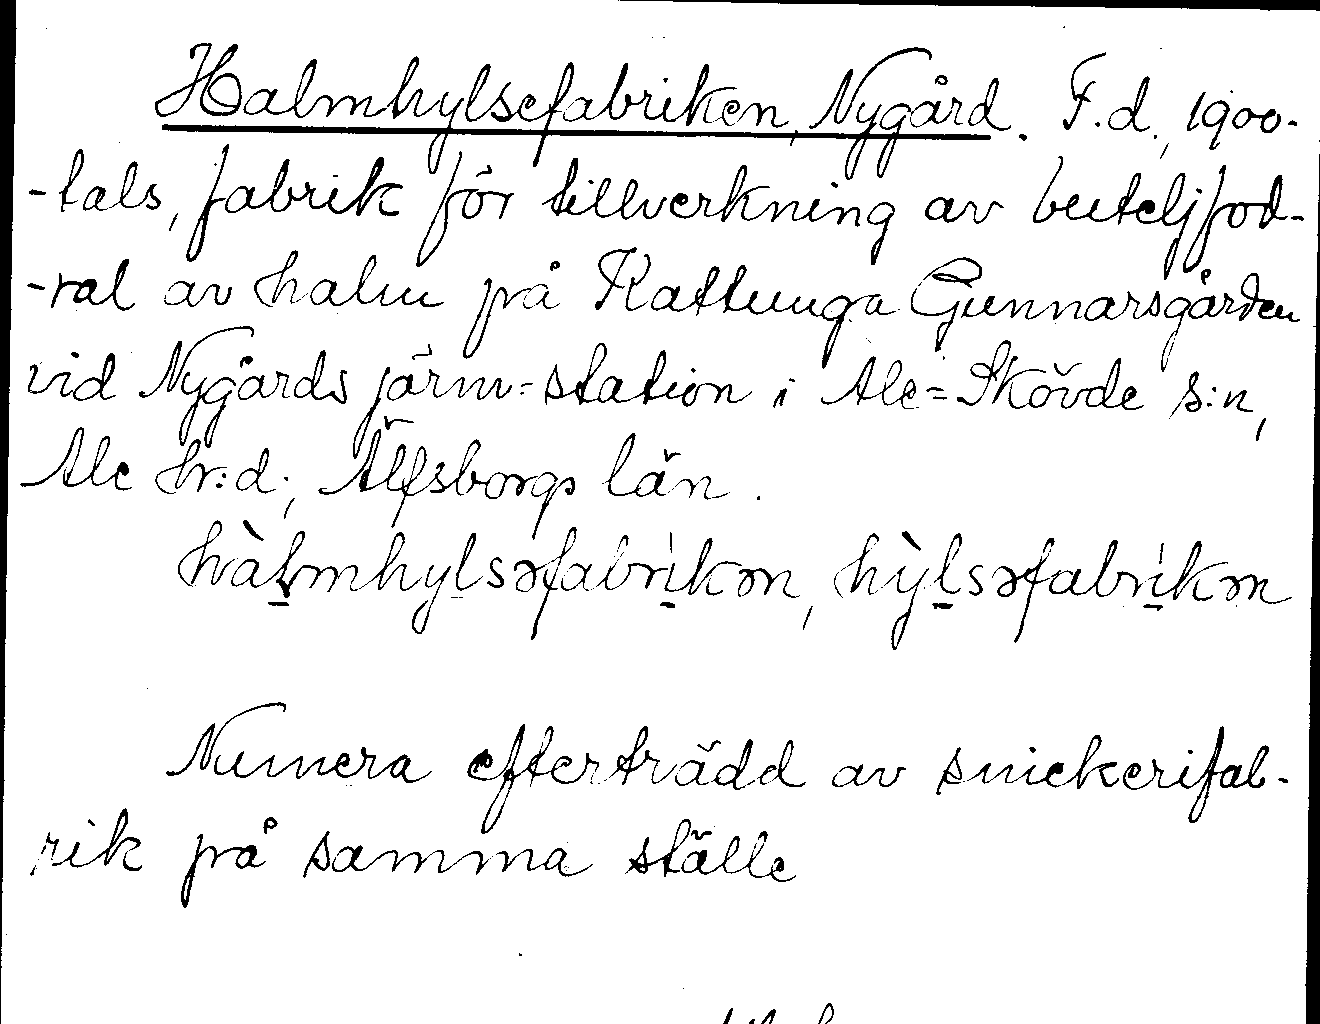 Halmhylsefabriken, Nygård. F.d., 1900-
-tals, fabrik för tillverkning av buteljfod-
-ral av halm på Kattunga Gunnarsgården
vid Nygårds järnv=station i Ale=Skövde s:n,
Ale hr:d., Älfsborgs län.
hàḷmhylsəfabrikən, hỳlsəfabrikən
Numera efterträdd av snickerifab-
rik på samma ställe